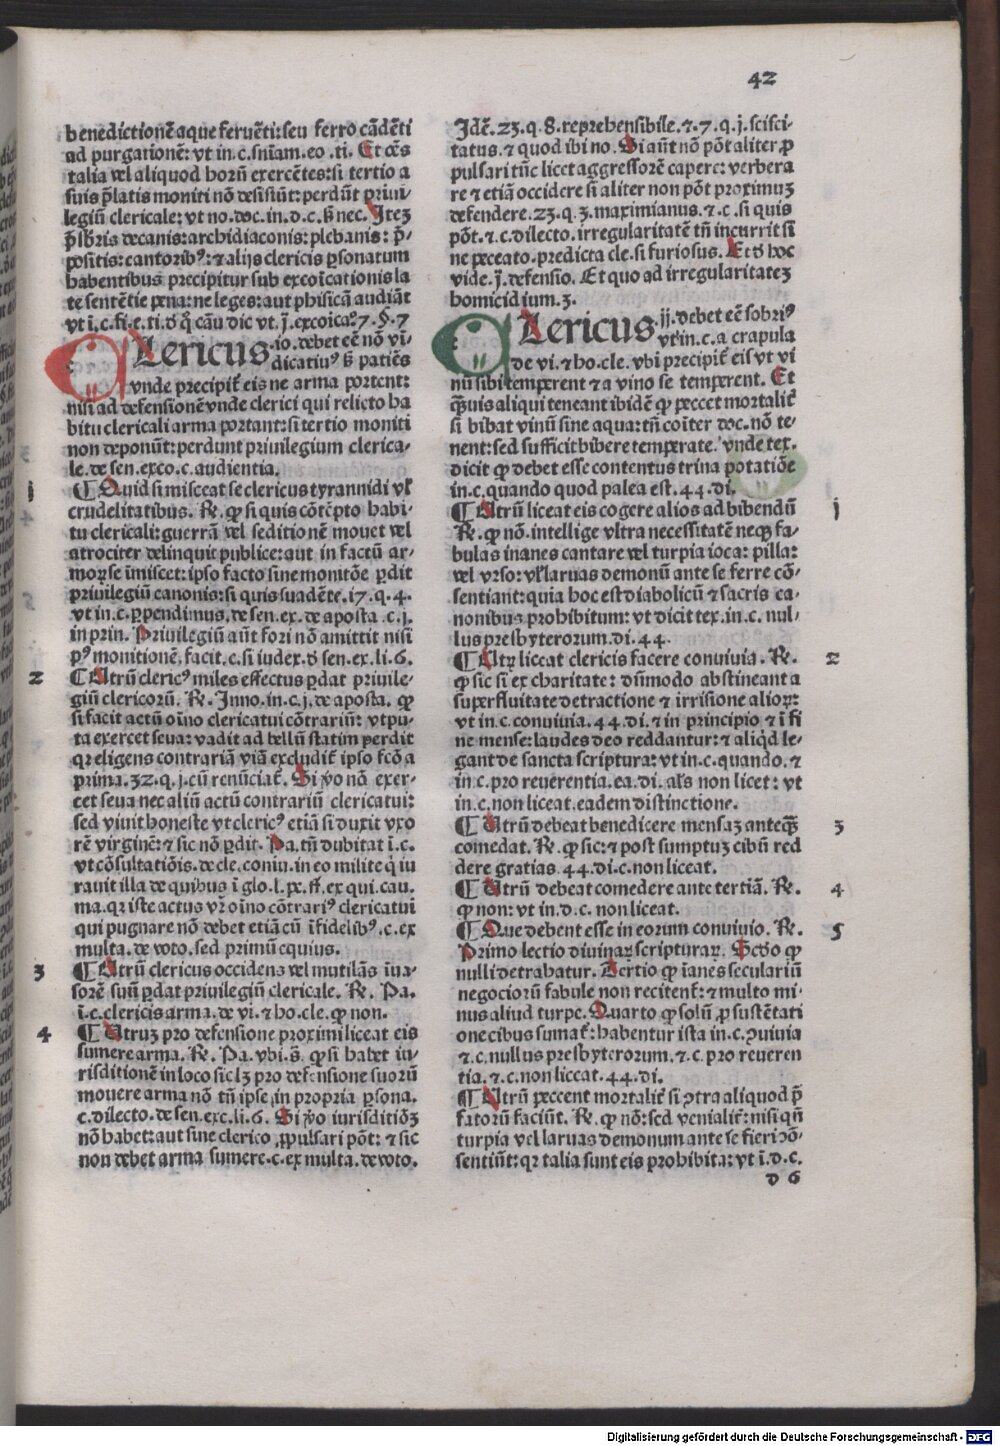 42
benedictionē aque feruēti: seu ferro cādēti
ad purgationē: vt in.c.sniam.eo.ti. Et oēs
talia vel aliquod horū exercētes: si tertio a
suis p̄latis moniti nō desistūt: perdūt priui-
legiū clericale: vt no.doc.in.d.c.s̄ nec. Itez
p̄sbris decanis: archidiaconis: plebanis: p̄-
positis: cantorib⁹: ⁊ alijs clericis ꝑsonatum
habentibus precipitur sub excōicationis la
te sentētie pena: ne leges: aut phisicā audiāt
vt ī.c.fi.e.ti.d̄ q̄ cāu dic vt.j.excōica⁹.7.§.7
Clericus .io.debet eē nō vī-
dicatiu⁹ s̄ patiēs
vnde precipit̄ eis ne arma portent:
nisi ad defensionē vnde clerici qui relicto ha
bitu clericali arma portant: si tertio moniti
non deponūt: perdunt priuilegium clerica-
le.de sen.exco.c.audientia.
¶ Quid si misceat se clericus tyrannidi vl̄
crudelitatibus. R̄. ꝙ si quis cōtēpto habi-
tu clericali: guerrā vel seditionē mouet vel
atrociter delinquit publice: aut in factū ar-
moꝝ se īmiscet: ipso facto sine monitōe ꝑdit
priuilegiū canonis: si quis suadēte.17.q.4.
vt in.c.ꝑpendimus.de sen.ex.de aposta.c.j.
in prin. Priuilegiū aūt fori nō amittit nisi
p⁹ monitionē.facit.c.si iudex.d̄ sen.ex.li.6.
¶ Utrū cleric⁹ miles effectus ꝑdat priuile-
giū clericorū. R̄. Inno.in.c.j.de aposta. ꝙ
si facit actū oīno clericatui cōtrariū: vt pu-
ta exercet seua: vadit ad bellū statim perdit
qꝛ eligens contrariā viā excludit̄ ipso fcō a
prima.32.q.j.cū renūciat̄. Si v̄o nō exer-
cet seua nec aliū actū contrariū clericatui:
sed viuit honeste vt cleric⁹ etiā si duxit vxo
rē virginē: ⁊ sic nō ꝑdit. Pa.tn̄ dubitat ī.c.
vt cōsultatiōis.de cle.coniu.in eo milite q̄ iu
rauit illa de quibus ī glo.l.pe.ff.ex qui.cau.
ma.qꝛ iste actus vr̄ oīno cōtrari⁹ clericatui
qui pugnare nō debet etiā cū īfidelib⁹.c.ex
multa.de voto.sed primū equius.
¶ Utrū clericus occidens vel mutilās īua-
sorē suū ꝑdat priuilegiū clericale. R̄. Pa.
ī.c.clericis arma.de vi.⁊ ho.cle.ꝙ non.
¶ Utruꝫ pro defensione proximi liceat eis
sumere arma. R̄. Pa.vbi.s̄. ꝙ si habet iu-
risditionē in loco sic lꝫ pro defensione suorū
mouere arma nō tn̄ ipse in propria ꝑsona.
c.dilecto.de sen.exc.li.6. Si v̄o iurisditiōꝫ
nō habet: aut sine clerico ꝓpulsari pōt: ⁊ sic
non debet arma sumere.c.ex multa.de voto.
j
2
3
4
Idē.23.q.8.reprehensibile.⁊.7.q.j.scisci-
tatus.⁊ quod ibi no. Si aūt nō pōt aliter ꝓ
pulsari tūc licet aggressorē capere: verbera
re ⁊ etiā occidere si aliter non pōt proximuꝫ
defendere.23.q.3.maximianus.⁊.c.si quis
pōt.⁊.c.dilecto.irregularitatē tn̄ incurrit si
ne peccato.predicta cle.si furiosus. Et d̄ hoc
vide.j.defensio. Et quo ad irregularitateꝫ
homicidium.3.
Clericus .ij.debet eē sobri⁹
vt in.c.a crapula
de vi.⁊ ho.cle.vbi precipit̄ eis vt vi
nū sibi temperent ⁊ a vino se temperent. Et
q̄uis aliqui teneant ibidē ꝙ peccet mortalit̄
si bibat vinū sine aqua: tn̄ cōiter doc.nō te-
nent: sed sufficit bibere temperate. vnde tex.
dicit ꝙ debet esse contentus trina potatiōe
in.c.quando quod palea est.44.di.
¶ Utrū liceat eis cogere alios ad bibendū
R̄. ꝙ nō.intellige vltra necessitatē neqꝫ fa-
bulas inanes cantare vel turpia ioca: pilla:
vel vrso: vl̄ laruas demonū ante se ferre cō-
sentiant: quia hoc est diabolicū ⁊ sacris ca-
nonibus prohibitum: vt dicit tex.in.c.nul-
lus presbyterorum.di.44.
¶ Utꝝ liceat clericis facere conuiuia. R̄.
ꝙ sic si ex charitate: dūmodo abstineant a
superfluitate detractione ⁊ irrisione alioꝝ:
vt in.c.conuiuia.44.di.⁊ in principio ⁊ ī fi
ne mense: laudes deo reddantur: ⁊ aliqd le-
gant de sancta scriptura: vt in.c.quando.⁊
in.c.pro reuerentia.ea.di. als non licet: vt
in.c.non liceat.eadem distinctione.
¶ Utrū debeat benedicere mensaꝫ anteq̄ꝫ
comedat. R̄. ꝙ sic: ⁊ post sumptuꝫ cibū red
dere gratias.44.di.c.non liceat.
¶ Utrū debeat comedere ante tertiā. R̄.
ꝙ non: vt in.d.c.non liceat.
¶ Que debent esse in eorum conuiuio. R̄.
Primo lectio diuinaꝝ scripturaꝝ. Scdo ꝙ
nulli detrahatur. Tertio ꝙ īanes seculariū
negociorū fabule non recitent̄: ⁊ multo mi-
nus aliud turpe. Quarto ꝙ solū ꝓ sustētati
one cibus sumat̄: habentur ista in.c.ꝯuiuia
⁊.c.nullus presbyterorum.⁊.c.pro reueren
tia.⁊.c.non liceat.44.di.
¶ Utrū peccent mortalit̄ si ꝯtra aliquod p̄
fatorū faciūt. R̄. ꝙ nō: sed venialit̄: nisi qn̄
turpia vel laruas demonum ante se fieri ꝯō-
sentiūt: qꝛ talia sunt eis prohibita: vt ī.d.c.
j
2
3
4
5
d 6
Digitalisierung gefördert durch die Deutsche Forschungsgemeinschaft - DFG